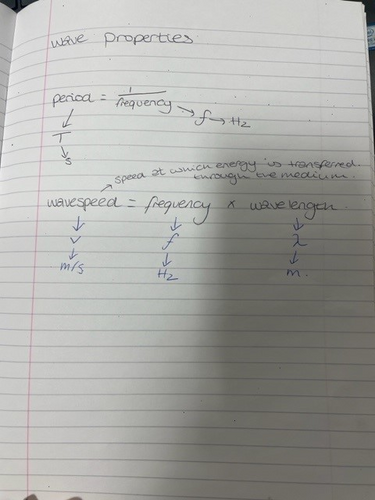 wave properties
period = 1
frequency → f → Hz
↓
T
↓
s
speed at which energy is transferred
through the medium.
wavespeed = frequency × wavelength.
↓ ↓ ↓
v f λ
↓ ↓ ↓
m/s Hz m.